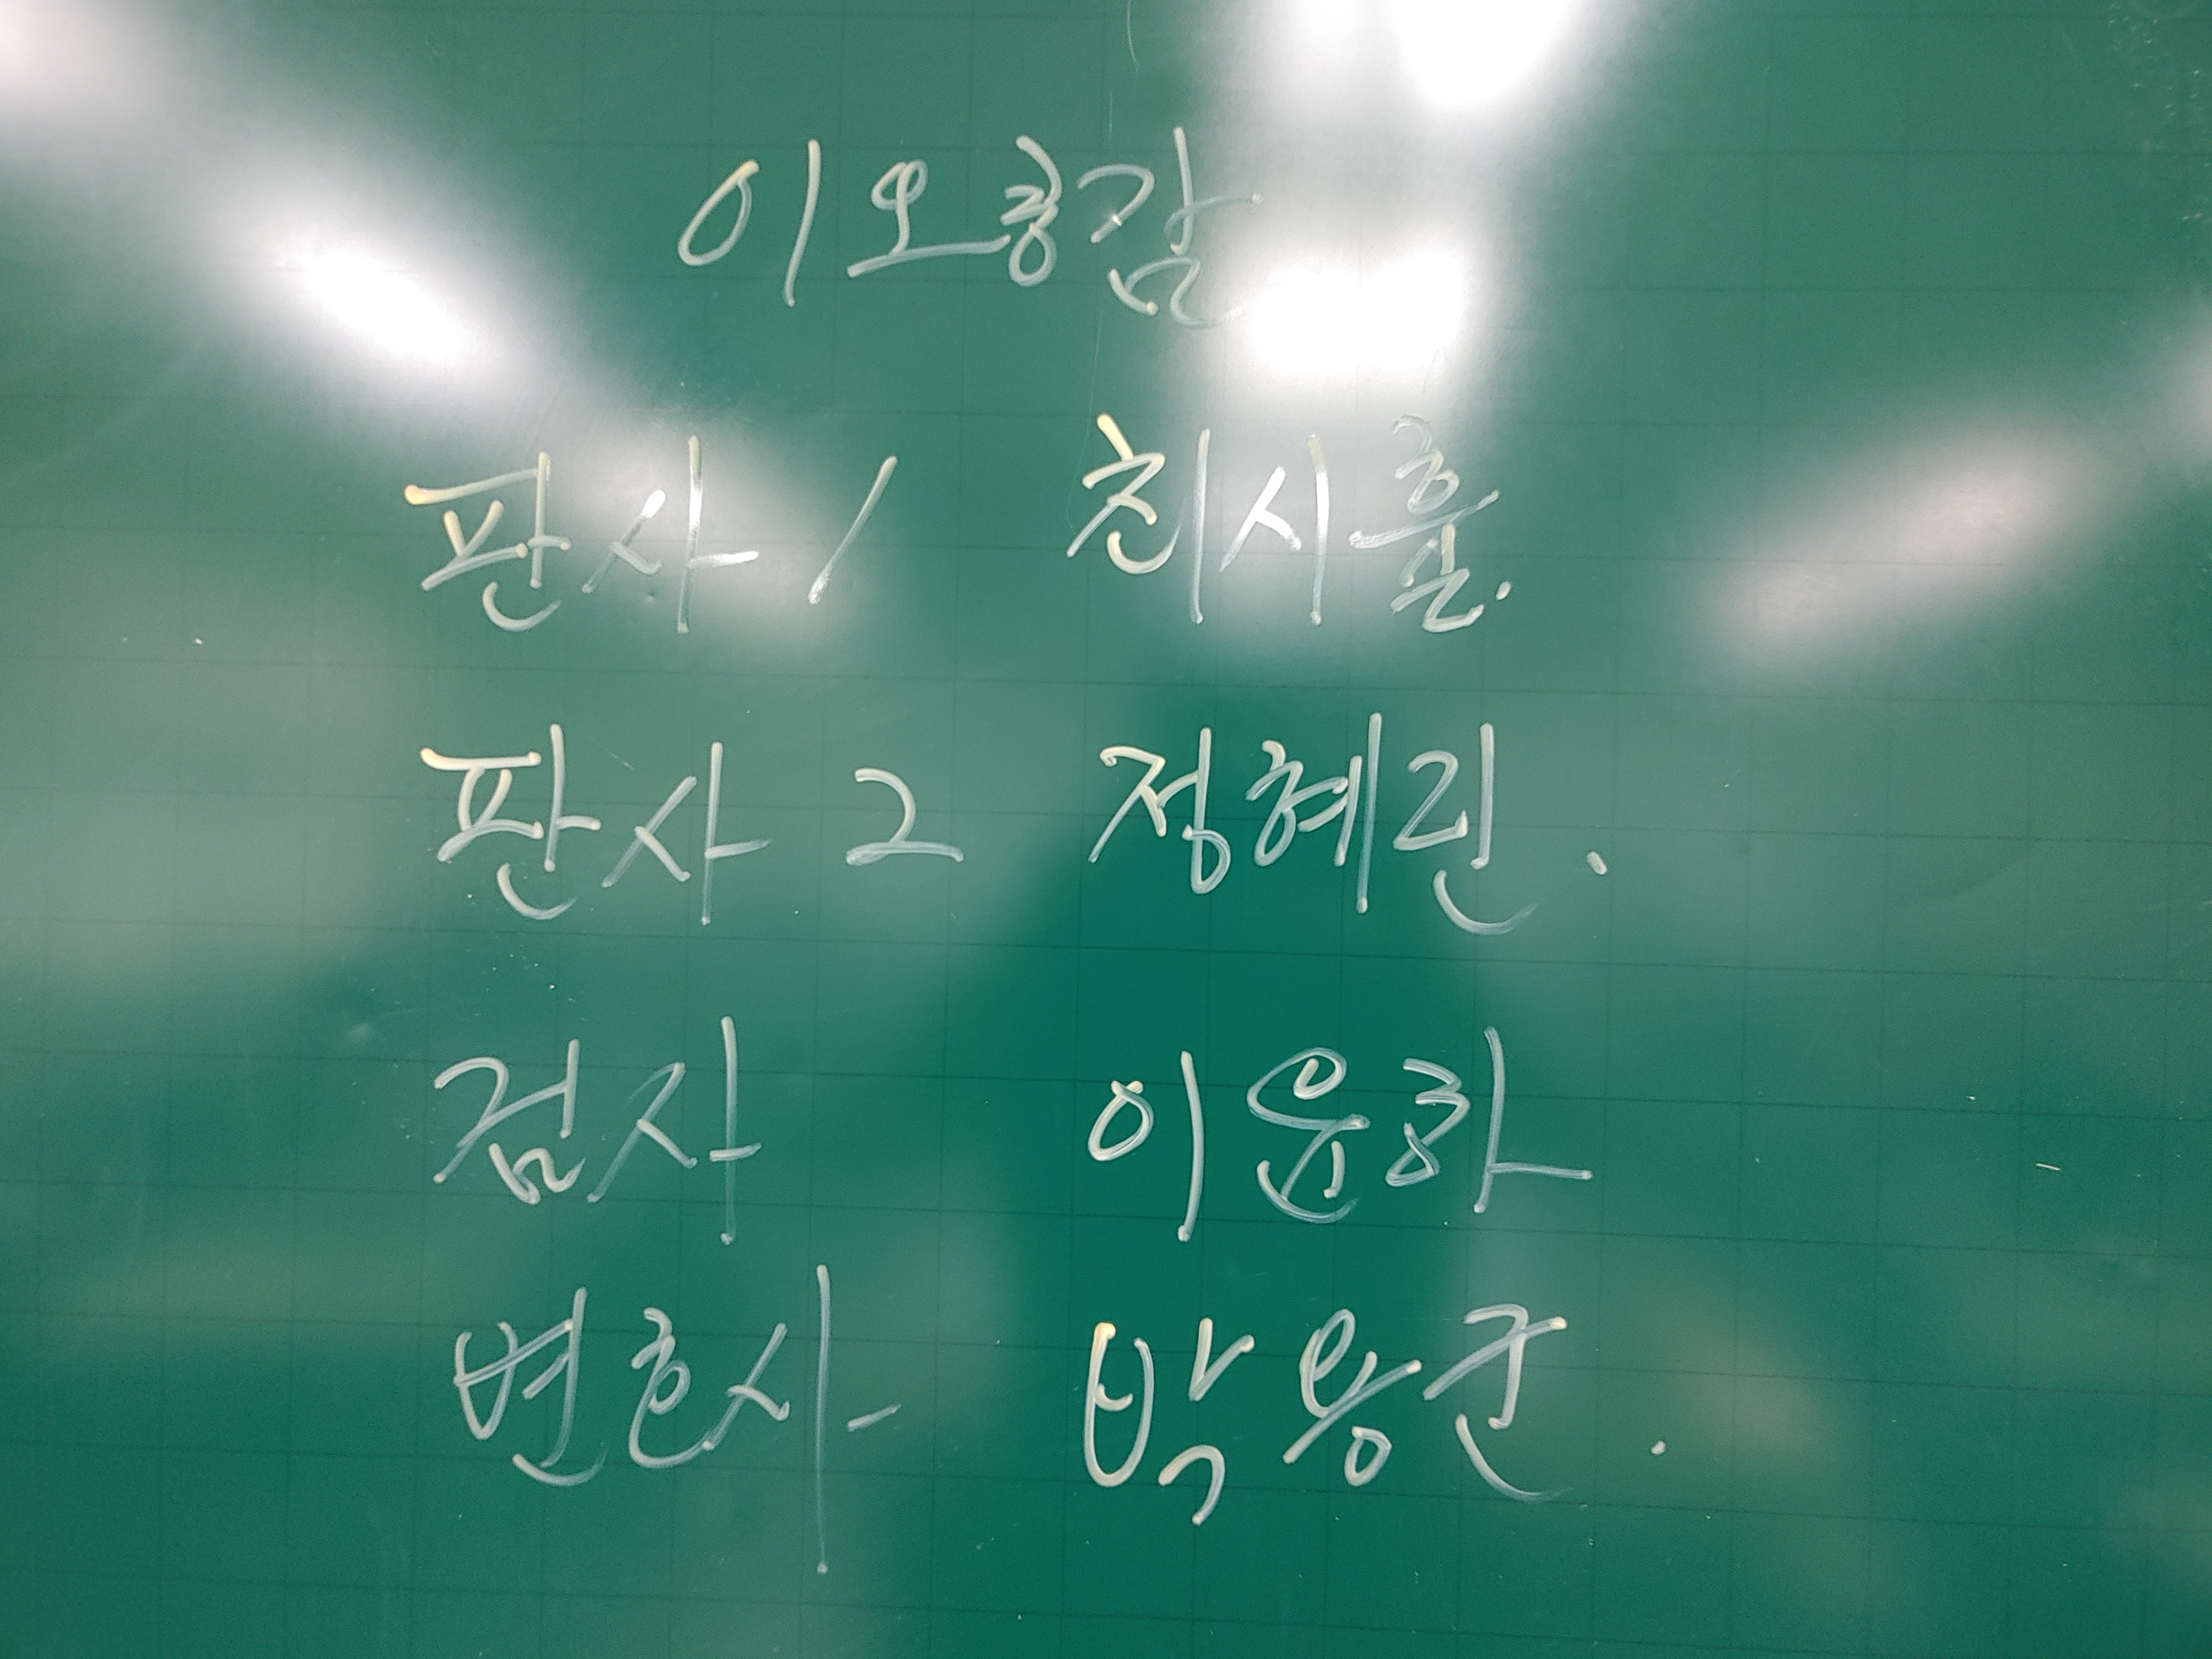 이오형감
판사 1 최시훈.
판사 2 정혜린.
검사 이윤하
변호사 박용준.